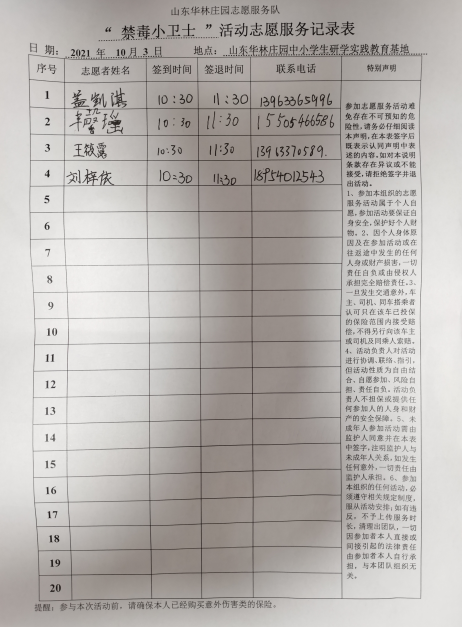 山东华林庄园志愿服务队
“ 禁毒小卫士 ”活动志愿服务记录表
日 期： 2021 年 10 月 3 日 地点： 山东华林庄园中小学生研学实践教育基地
序号 志愿者姓名 签到时间 签退时间 联系电话 特别声明
1 盖凯淇 10:30 11:30 13963365996
2 10:30 11:30 15505466586
3 10:30 11:30 13963370589.
4 刘梓依 10:30 11:30 18954012543
5
6
7
8
9
10
11
12
13
14
15
16
17
18
19
20
参加志愿服务活动难
免存在不可预知的危
险性，请务必仔细阅读
本声明，在本表签字后
既表示认同声明中表
述的内容，如对本说明
条款存在异议或不能
接受，请拒绝签字并退
出活动。
1、参加本组织的志愿
服务活动属于个人自
愿，参加活动要保证自
身安全，保护好个人财
物。2、因个人身体原
因及在参加活动或在
往返途中发生的任何
人身或财产损害，一切
责任自负或由侵权人
承担完全赔偿责任。3、
一旦发生交通意外，车
主、司机、同车搭乘者
认可只在该车已投保
的保险范围内接受赔
偿，不得另行向该车主
或司机及同乘人索赔。
4、活动负责人对活动
进行协调、联络、指引，
但活动性质为自由结
合、自愿参加、风险自
担、责任自负。活动负
责人不担保或提供任
何参加人的人身和财
产的安全保障。5、未
成年人参加活动需由
监护人同意并在本表
中签字，注明监护人与
未成年人关系，如发生
任何意外，一切责任由
监护人承担。6、参加
本组织的任何活动，必
须遵守相关规定制度，
服从活动安排；如有违
反，不予上传服务时
长，清理出团队，一切
因参加者本人直接或
间接引起的法律责任
由参加者本人自行承
担，与本团队组织无
关。
提醒：参与本次活动前，请确保本人已经购买意外伤害类的保险。